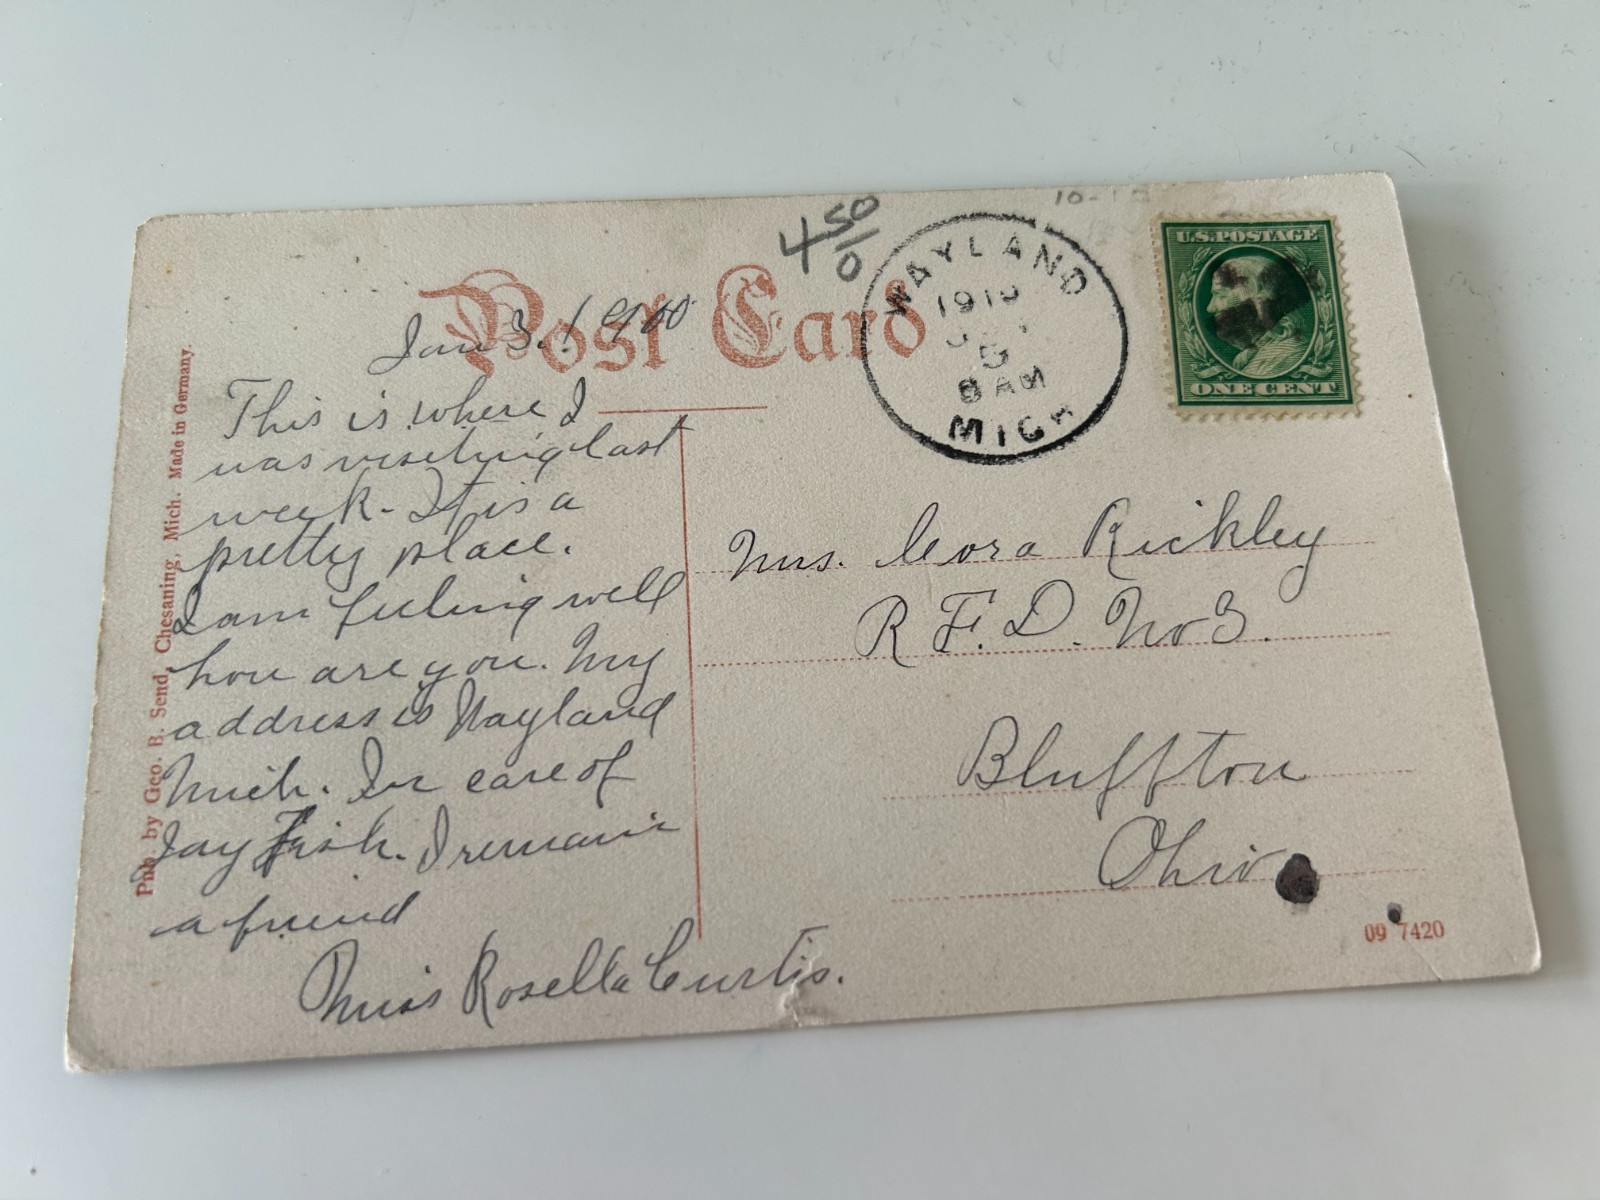 Post Card
4 50/0
Jan 3. 1910
This is where I
was visiting last
week. It is a
pretty place.
I am feeling well
how are you. My
address is Wayland
Mich. In care of
Jay Fish. I remain
a friend
Miss Rosella Curtis.
WAYLAND
1910
5
8 AM
MICH
U.S. POSTAGE
ONE CENT
Mrs. Cora Rickley
R. F. D. No 3.
Bluffton
Ohio
09 7420
Pub. by Geo. B. Send, Chesaning, Mich. Made in Germany.